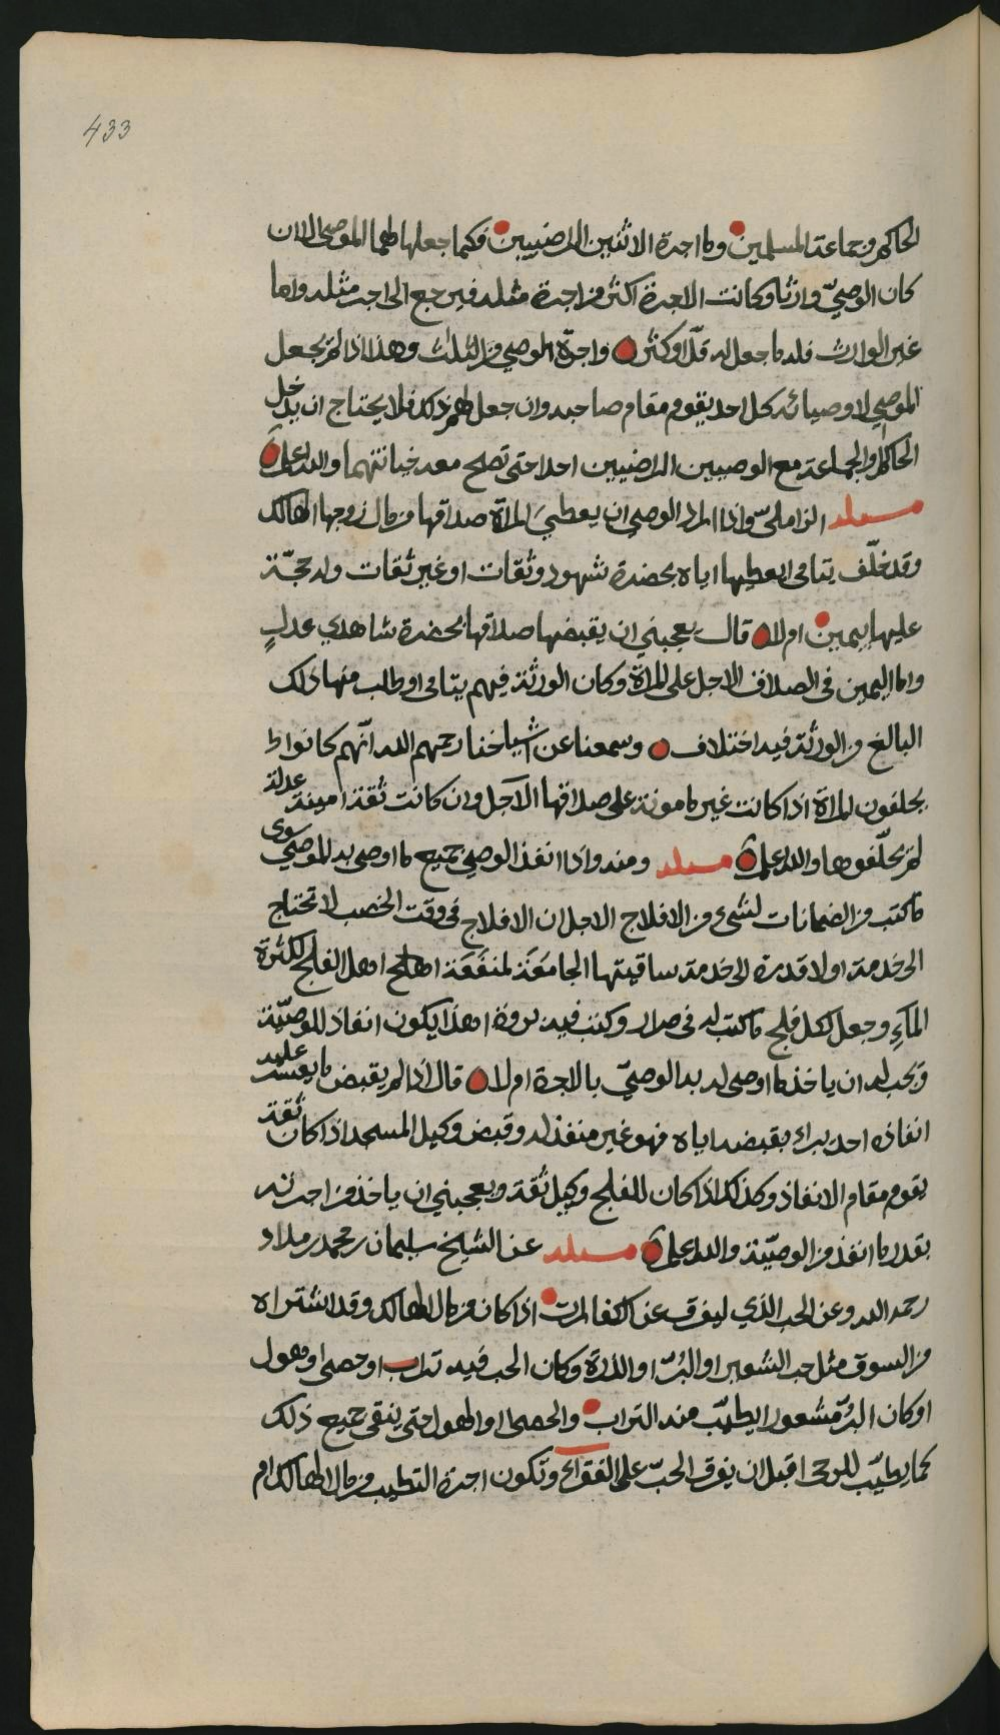 433
الحاكم وجماعة المسلمين وما اجرة الاثنين المرضيين فكما جعلها لهما الموصي الا ان
كان الوصيّ وارثا وكانت الاجرة اكثر من اجرة مثله فيرجع الى اجر مثله واما
غير الوارث فله ما جعل له قلّ او كثر واجرة الوصي من الثلث وهذا اذا لم يجعل
الموصي لاوصيائه كل احد يقوم مقام صاحبه وان جعل لهم ذلك فلا يحتاج ان يدخل
الحاكم او الجماعة مع الوصيين المرضيين احدا حتى تصح معه خيانتهما والله اعلم
مسئلة الزاملي واذا اراد الوصي ان يعطي المرأة صداقها من مال زوجها الهالك
وقد خلّف يتامى ايعطيها اياه بحضرة شهود وثقات او غير ثقات وله حجّة
عليها بيمين ام لا قال يعجبني ان يقبضها صداقها بحضرة شاهدي عدل
واما اليمين في الصداق الاجل على المرأة وكان الورثة فيهم يتامى او طلب منها ذلك
البالغ من الورثة فيه اختلاف وسمعنا عن اشياخنا رحمهم الله انّهم كانوا
يحلفون المرأة اذا كانت غير مامونة على صداقها الآجل وان كانت ثقة امينة عدلة
لم يحلّفوها والله اعلم مسئلة ومنه واذا انفذ الوصي جميع ما اوصى به الموصي سوى
ما كتب من الضمانات لشيء من الافلاج الا جل ان الافلاج في وقت الخصب لا تحتاج
الى خدمة او لا قدرة الى خدمة ساقيتها الجامعة لمنفعة اهل الفلج لكثرة
الماء وجعل لكل فلج ما كتب له في صرار وكتب فيه بروة اهذا يكون انفاذ للوصيّة
ويجب له ان ياخذ ما اوصى له به الوصيّ بالاجرة ام لا قال اذا لم يقبض ما يعسر عليه
انفاذه احد يبراء بقبضه اياه فهو غير منفذ له وقبض وكيل المسجد اذا كان ثقة
يقوم مقام الانفاذ وكذلك اذا كان للفلج وكيل ثقة ويعجبني ان ياخذ من اجرته
بقدر ما انفذ من الوصيّة والله اعلم مسئلة عن الشيخ سليمان بن محمد بن مداد
رحمه الله وعن الحب الذي ليفرق عن الكفارات اذا كان من مال الهالك وقد اشتراه
من السوق مثل حب الشعير او البُرّ او الذرة وكان الحب فيه تراب او حصى او هول
او كان البرّ مشعورا يطيّب منه التراب والحصا او الهول حتى ينقى جميع ذلك
كما يطيّب للرحى قبل ان يفرق الحبّ على الفقراء وتكون اجرة التطييب من مال الهالك ام